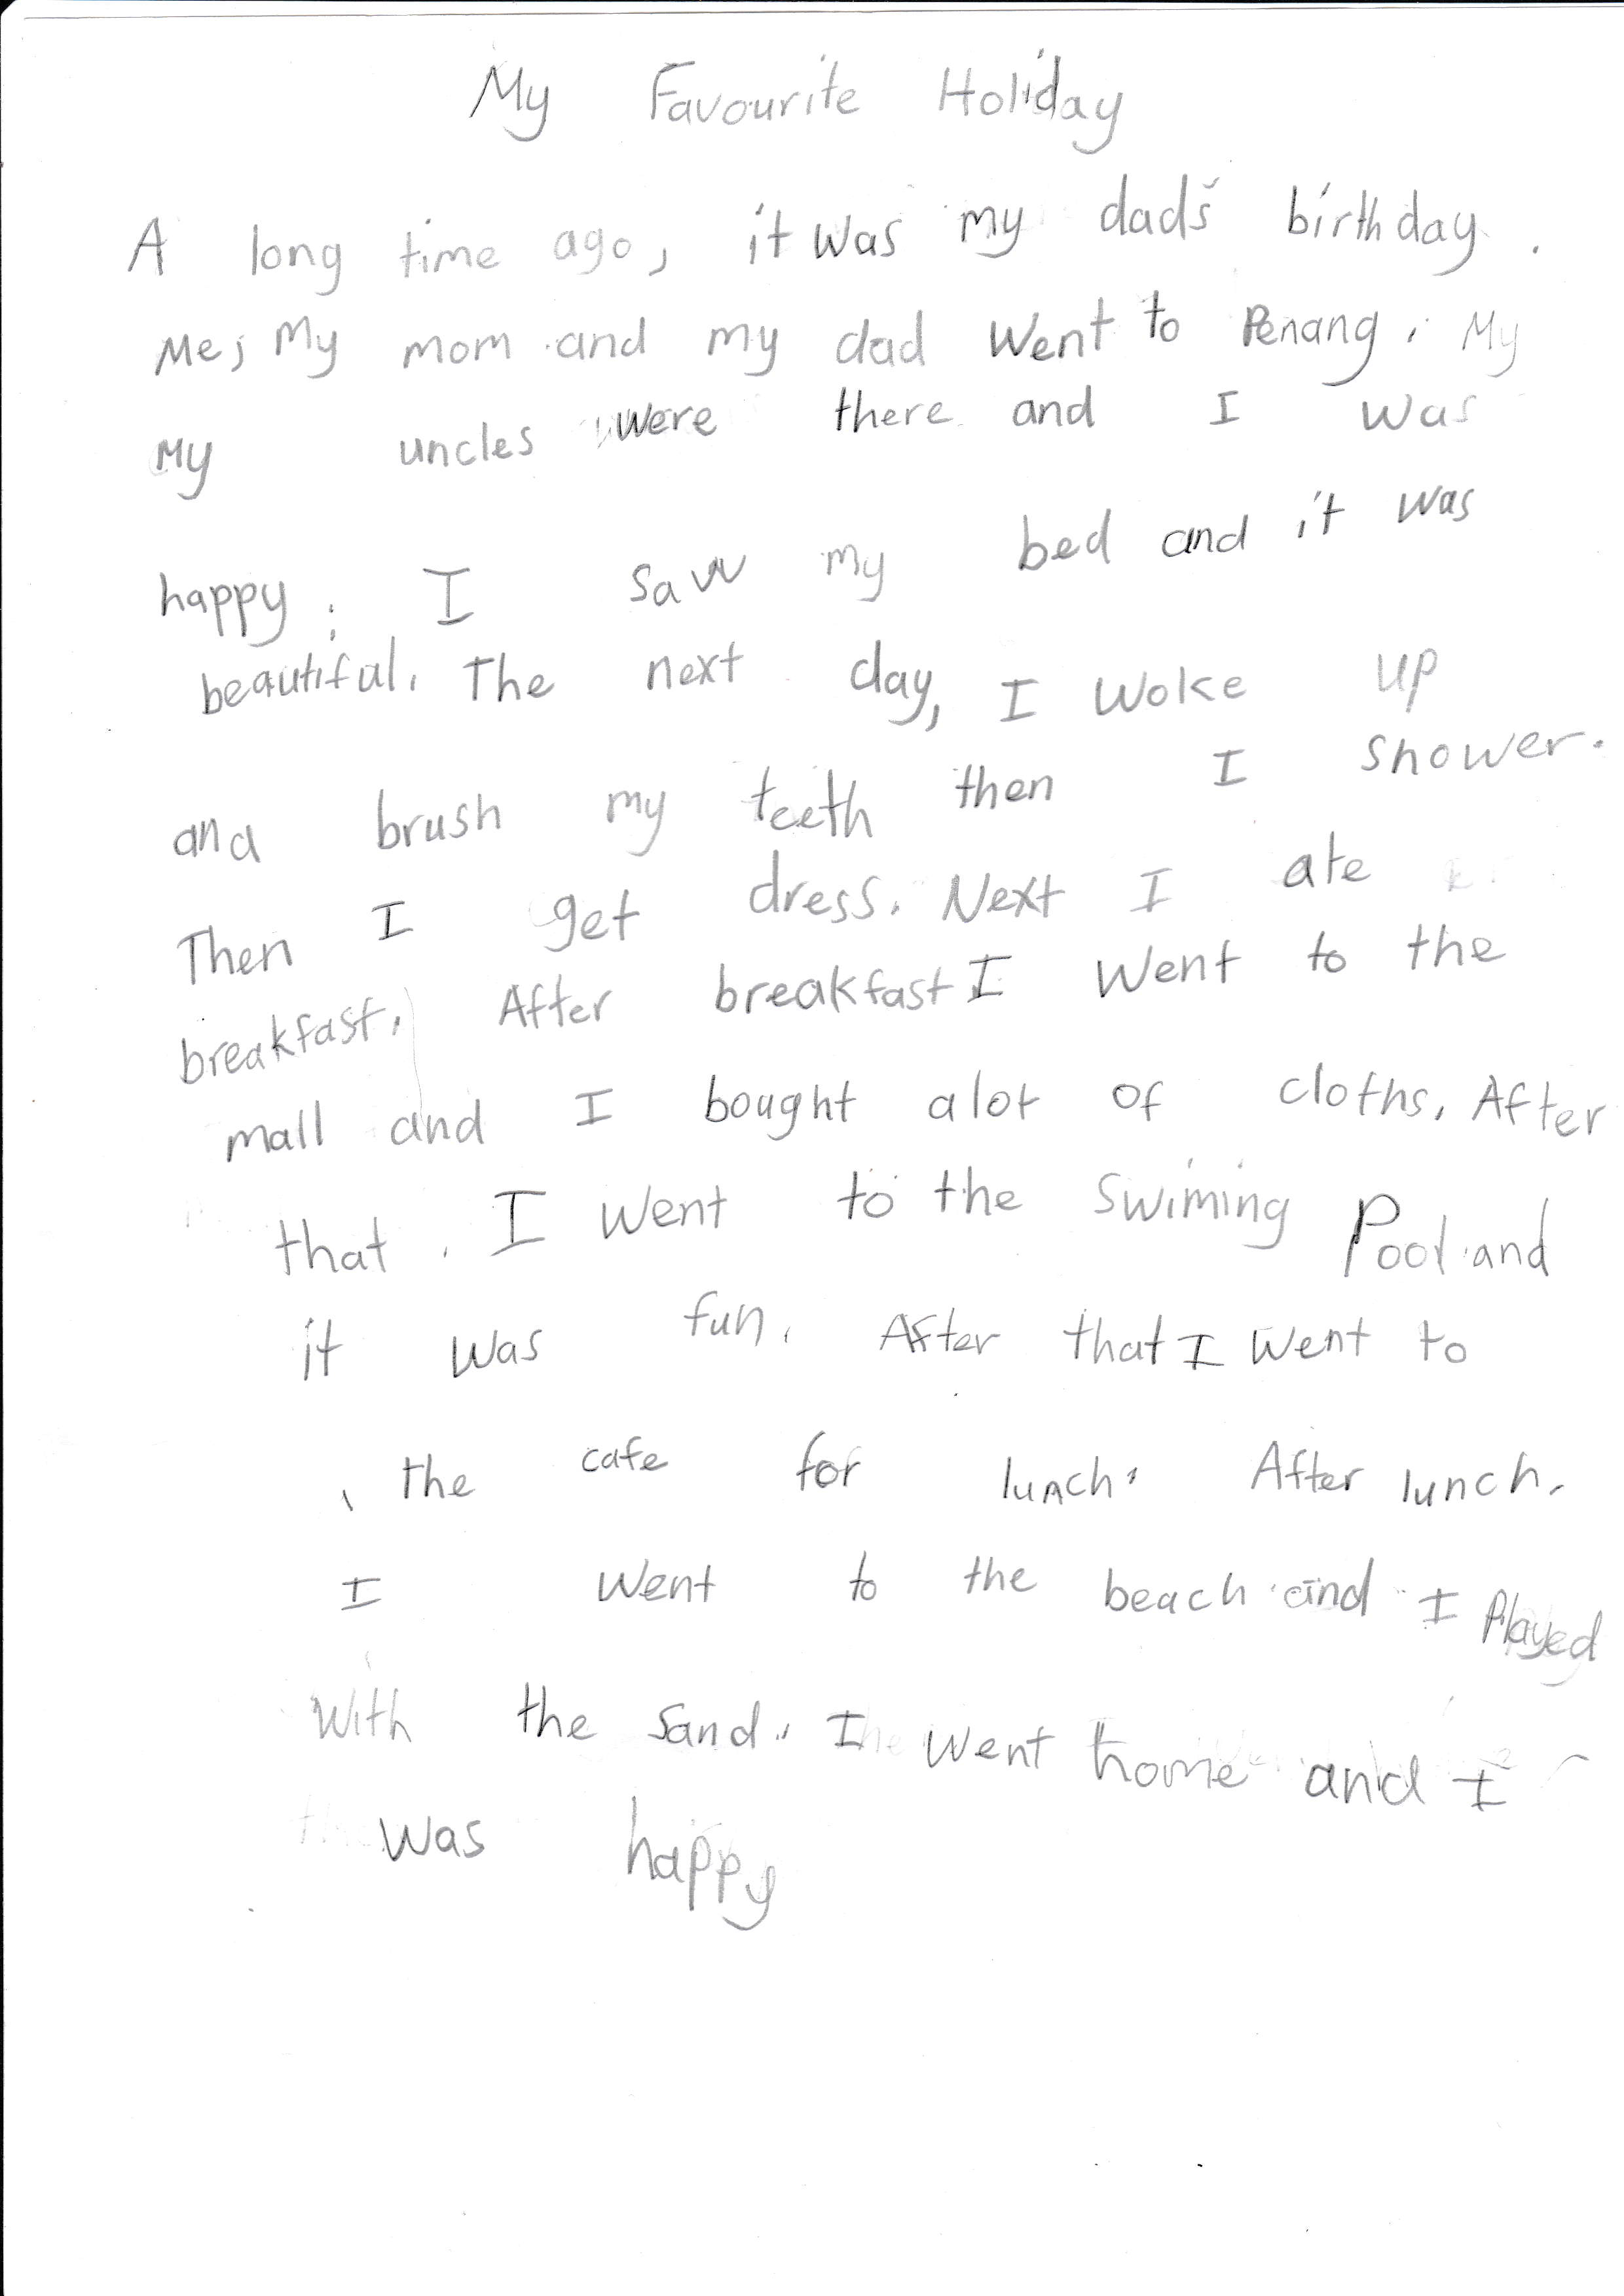 My Favourite Holiday
A long time ago, it was my dad's birthday.
Me, My mom and my dad went to Penang. My
My uncles were there and I was
happy. I saw my bed and it was
beautiful. The next day, I woke up
and brush my teeth then I shower.
Then I get dress. Next I ate
breakfast. After breakfast I went to the
mall and I bought alot of cloths. After
that, I went to the swiming Pool and
it was fun. After that I went to
the cafe for lunch. After lunch,
I went to the beach and I Played
with the sand. I went home and I
was happy